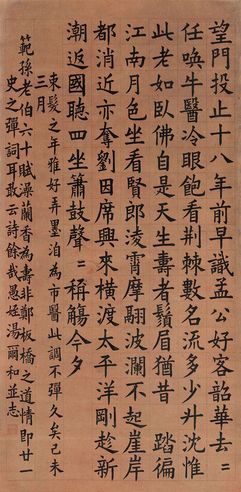 望門投止十八年前早識孟公好客韶華去〻
任喚牛醫冷眼飽看荆棘數名流多少升沈惟
此老如臥佛自是天生壽者鬚眉猶昔 踏徧
江南月色坐看賢郎淩霄摩翮波瀾不起崖岸
都消近亦奪劉因席興來橫渡太平洋剛趁新
潮返國聽四坐簫鼓聲〻稱觴今夕
束髮之年雅好弄墨洎為市醫此調不彈久矣己未
三月
範孫老伯六十賦澡蘭香為壽非鄭板橋之道情即廿一
史之彈詞耳敢云詩餘哉愚姪湯爾和並志